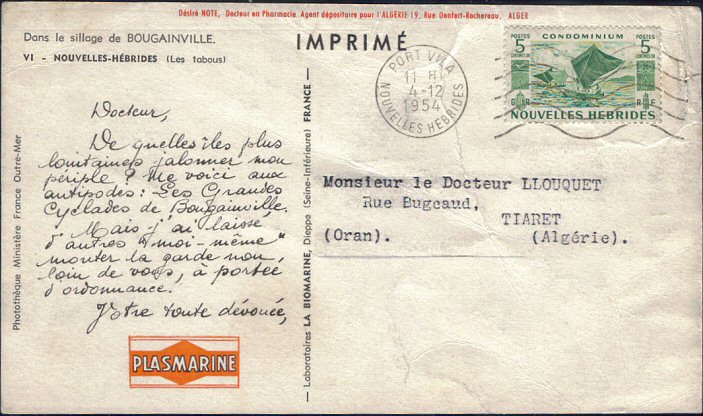 Désiré NOTE, Docteur en Pharmacie. Agent dépositaire pour l'ALGERIE 19, Rue Denfert-Rochereau, ALGER
Dans le sillage de BOUGAINVILLE.
VI - NOUVELLES-HÉBRIDES (Les tabous)
IMPRIMÉ
PORT VILA
11 H
4-12
1954
NOUVELLES HEBRIDES
POSTES
5
CENTIMES OR
CONDOMINIUM
POSTES
5
CENTIMES OR
G R
R F
NOUVELLES HEBRIDES
Docteur,
De quelles îles plus
lointaines jalonner mon
périple ? Me voici aux
antipodes : Les Grandes
Cyclades de Bougainville.
Mais j'ai laissé
d'autres "moi-même"
monter la garde non
loin de vous, à portée
d'ordonnance.
Votre toute dévouée,
PLASMARINE
Photothèque Ministère France Outre-Mer
Laboratoires LA BIOMARINE, Dieppe (Seine-Inférieure) FRANCE
Monsieur le Docteur LLOUQUET
Rue Bugeaud,
TIARET
(Oran). (Algérie).